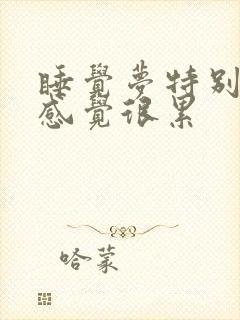 睡覺夢特別
感覺很累
哈蒙